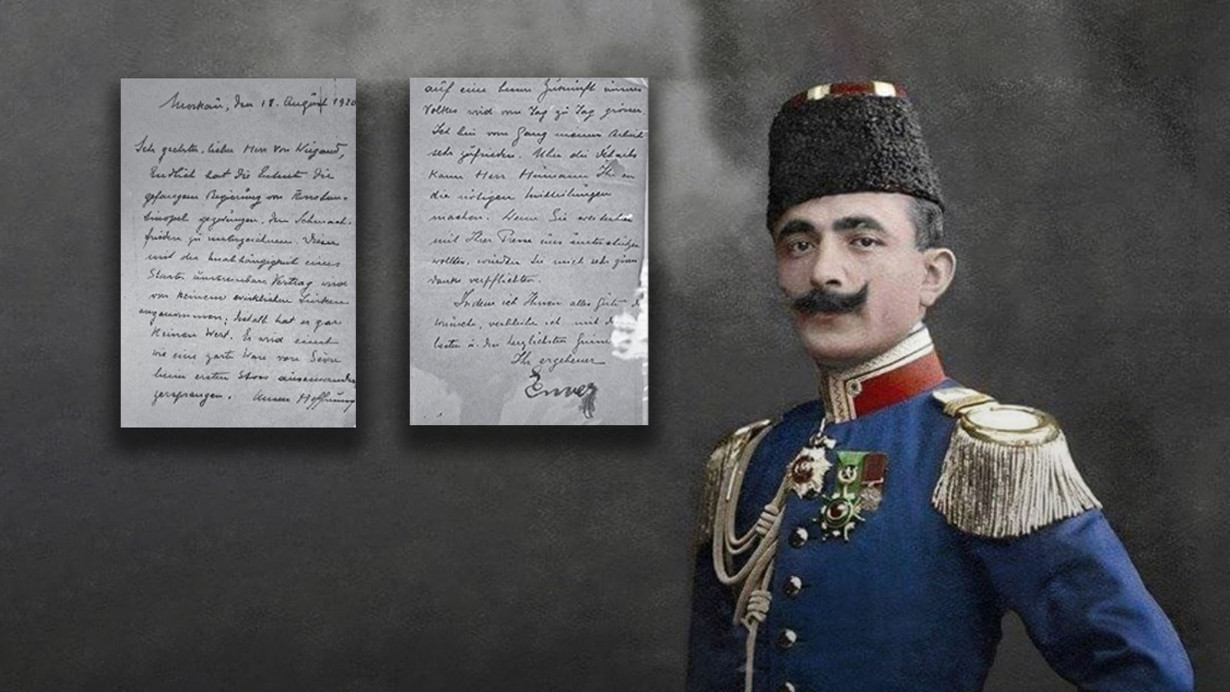 Moskau, den 18. August 1920
Sehr geehrter, lieber Herr von Wiegand,
Endlich hat die Entente die
gefangene Regierung von Konstan-
tinopel gezwungen, den Schmach-
frieden zu unterzeichnen. Diesen
mit der Unabhängigkeit eines
Staates unvereinbaren Vertrag wird
von keinem wirklichen Türken
angenommen; deshalb hat er gar
keinen Wert. Er wird einst
wie eine zarte Ware von Sèvres
beim ersten Stoss auseinander
zerspringen. Unsere Hoffnung
auf eine bessere Zukunft unseres
Volkes wird von Tag zu Tag grösser.
Ich bin vom Gang meiner Arbeit
sehr zufrieden. Über die Details
kann Herr Ihnen
die nötigen Mitteilungen
machen. Wenn Sie weiterhin
mit Ihrer Presse uns unterstützen
wollten, würden Sie mich sehr zum
Danke verpflichten.
Indem ich Ihnen alles Gute
wünsche, verbleibe ich mit d
besten u. den herzlichsten Grüssen
Ihr ergebener
Enver